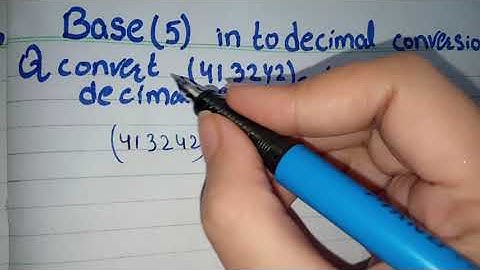 Base (5) in to decimal conversio
Q convert (413242)
decima
(413242)